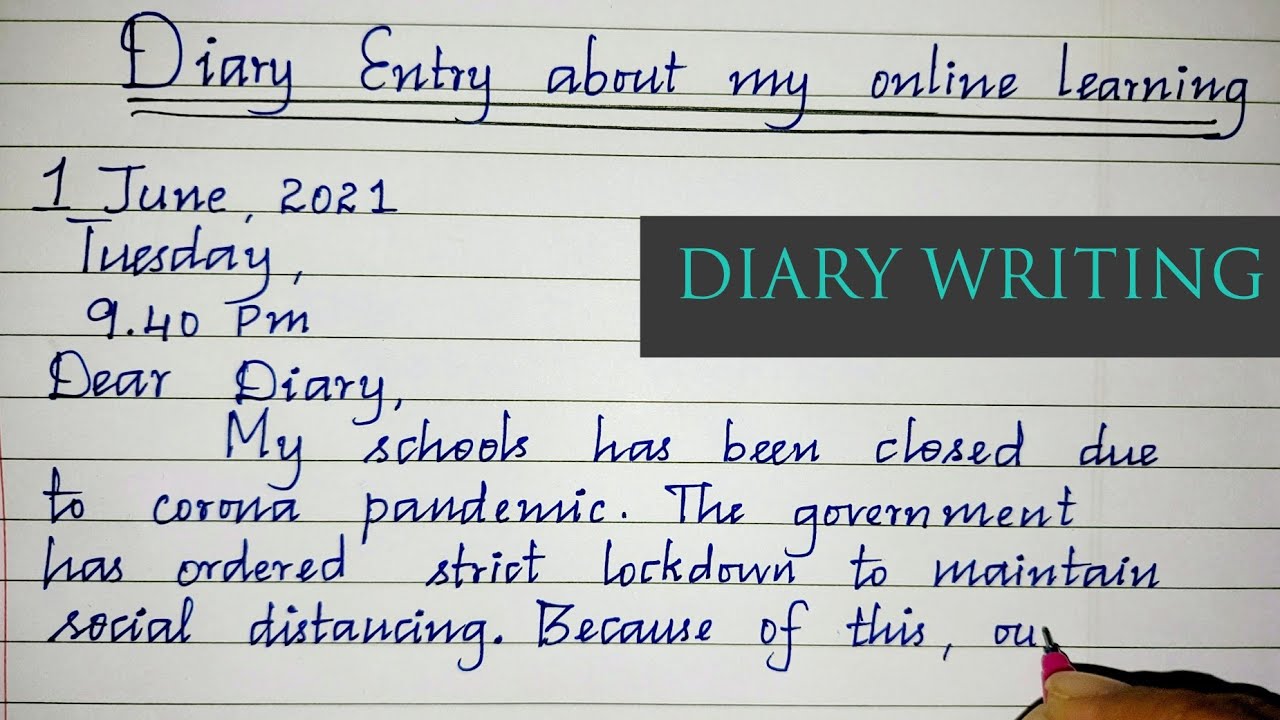 Diary Entry about my online learning
1 June, 2021
Tuesday,
DIARY WRITING
9.40 Pm
Dear Diary,
My schools has been closed due
to corona pandemic. The government
has ordered strict lockdown to maintain
social distancing. Because of this, ou